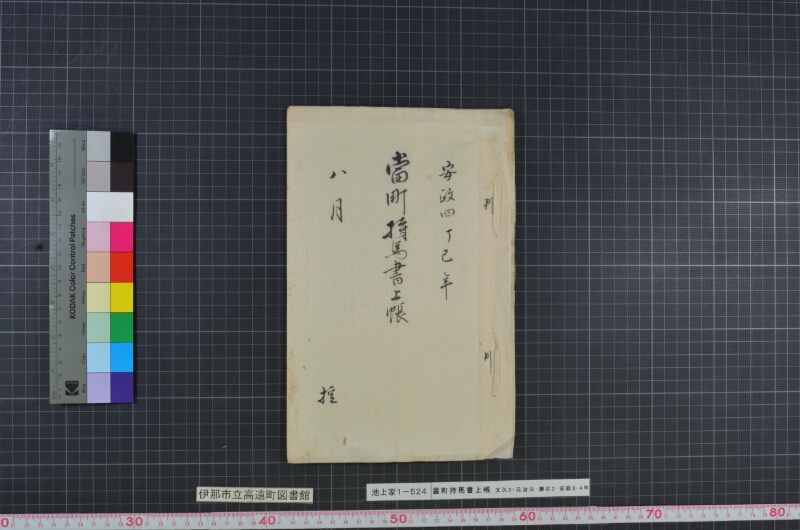 安政四丁巳年
當町持馬書上帳
八月
控
KODAK Color Control Patches
伊那市立高遠町図書館
池上家1-524
當町持馬書上帳
30
40
50
60
70
80